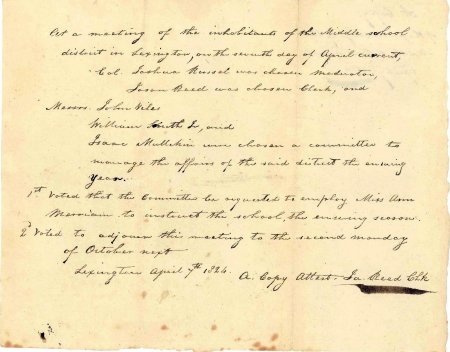 At a meeting of the inhabitants of the Middle school
district in Lexington, on the seventh day of April current,
Col. Joshua Russel was chosen moderator,
Jason Reed was chosen Clerk, and
Messrs. John Viles
William Jr, and
Isaac Mullikin were chosen a committee to
manage the affairs of the said district the ensuing
year.
1st Voted that the Committee be requested to employ Miss Ann
Merriam to instruct the school, the ensuing season.
2d Voted to adjourn this meeting to the second monday
of October next
Lexington April 7th 1824. A Copy Attest. Ja. Reed Clk